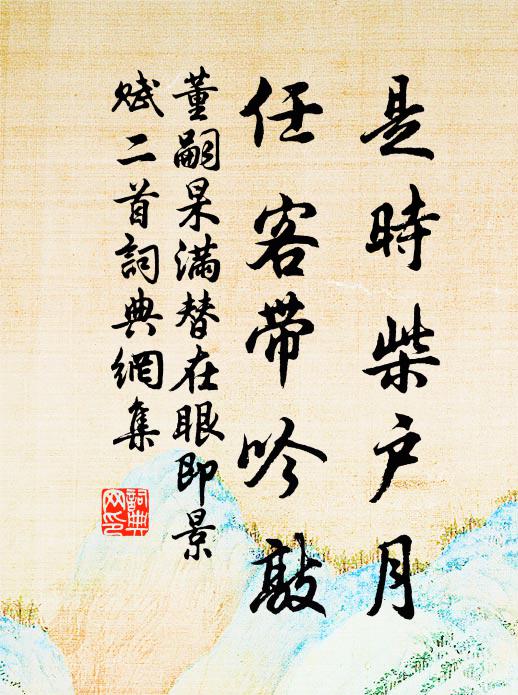 是時柴户月
任客帶吟敲
董嗣杲滿替在眼即景
賦二首詞典網集
詞典
网印